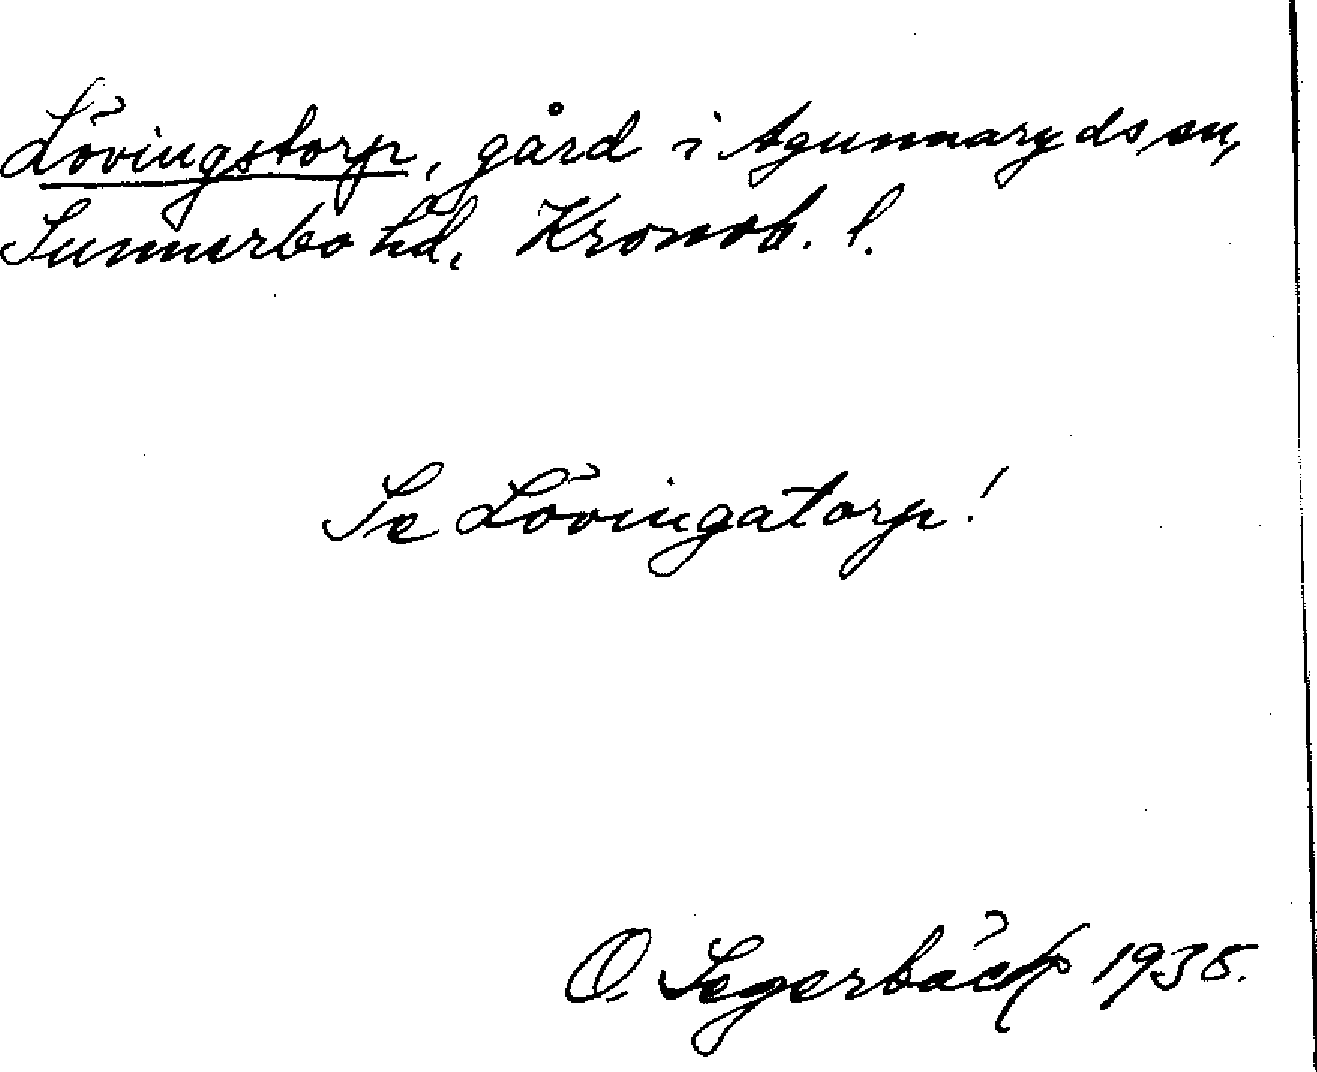 Lövingstorp, gård i Agunnaryds sn,
Sunnerbo hd, Kronob. l.
Se Lövingatorp!
O. Segerbäck 1935.